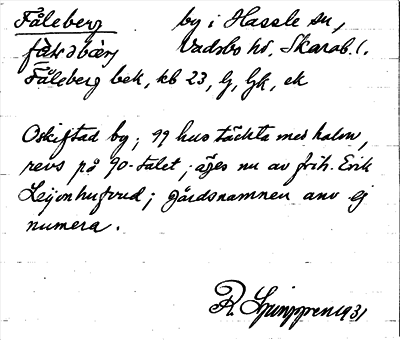 Fåleberg by i Hassle sn,
Vadsbo hd, Skarab. l.
Fåleberg bek, kb 23, G, Gk, ek
Oskiftad by; 99 hus täckta med halm,
revs på 90-talet; äges nu av frih. Erik
Leijonhufvud; gårdsnamnen anv ej
numera.
R. Ljunggren 1931